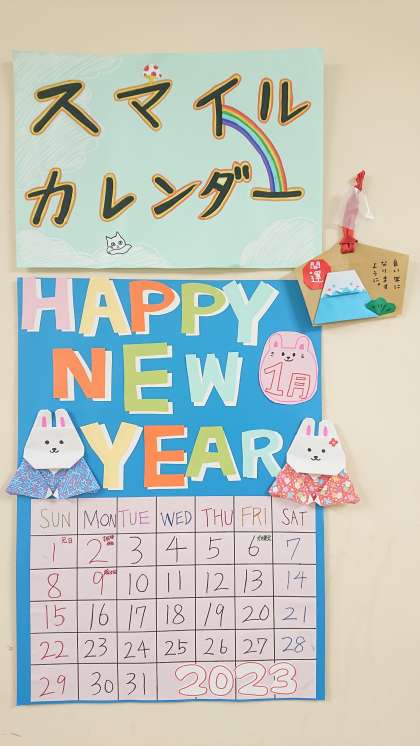 スマイル
カレンダー
開運
良い年に
なります
ように。
HAPPY
NEW
1月
YEAR
SUN MON TUE WED THU FRI SAT
1 元日 2 3 4 5 6 7
8 9 10 11 12 13 14
15 16 17 18 19 20 21
22 23 24 25 26 27 28
29 30 31
2023